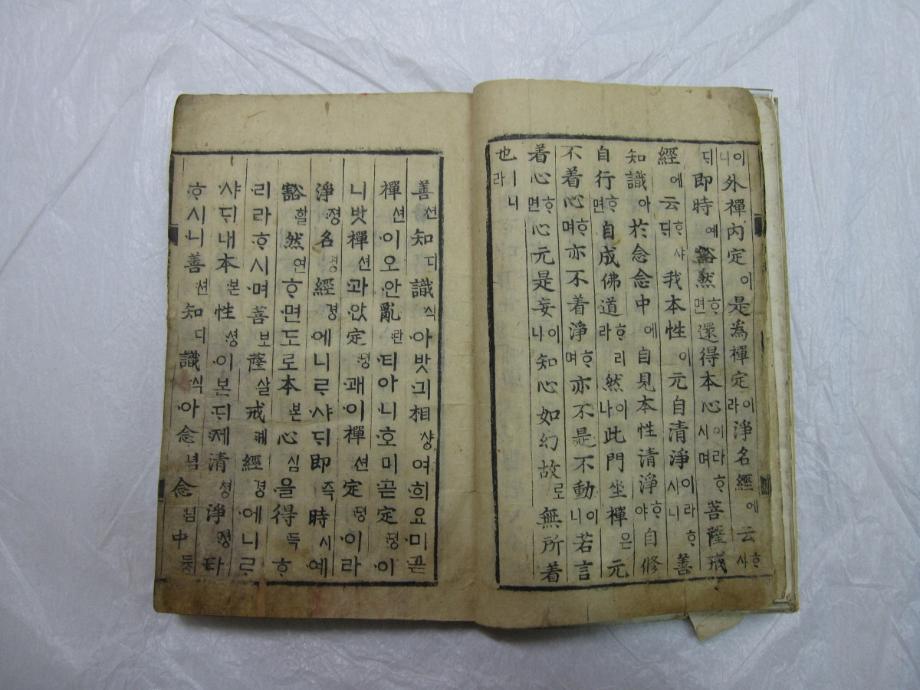 이니外禪內定이是為禪定이라淨名經에云ᄒᆞ샤
ᄃᆡ即時예豁然ᄒᆞ면還得本心이라ᄒᆞ시며菩薩戒
經에云ᄒᆞ샤ᄃᆡ我本性이元自清淨이라ᄒᆞ시니善
知識아於念念中에自見本性清淨ᄒᆞ야自修
自行ᄒᆞ면自成佛道ᄒᆞ리라然이나此門坐禪은元
不着心ᄒᆞ며亦不着淨ᄒᆞ며亦不是不動이니若言
着心ᄒᆞ면心元是妄이나知心如幻故로無所着
也ㅣ니라
善션知디識식아밧긔相샹여희요미곧
禪션이오안亂란티아니호미곧定뎡이
니밧禪션과안定뎡괘이禪션定뎡이라
淨졍名명經경에니ᄅᆞ샤ᄃᆡ即즉時시예
豁할然연ᄒᆞ면도로本본心심을得득ᄒᆞ
리라ᄒᆞ시며菩보薩살戒계經경에니ᄅᆞ
샤ᄃᆡ내本본性셩이본ᄃᆡ제清쳥淨졍타
ᄒᆞ시니善션知디識식아念념念념中듕